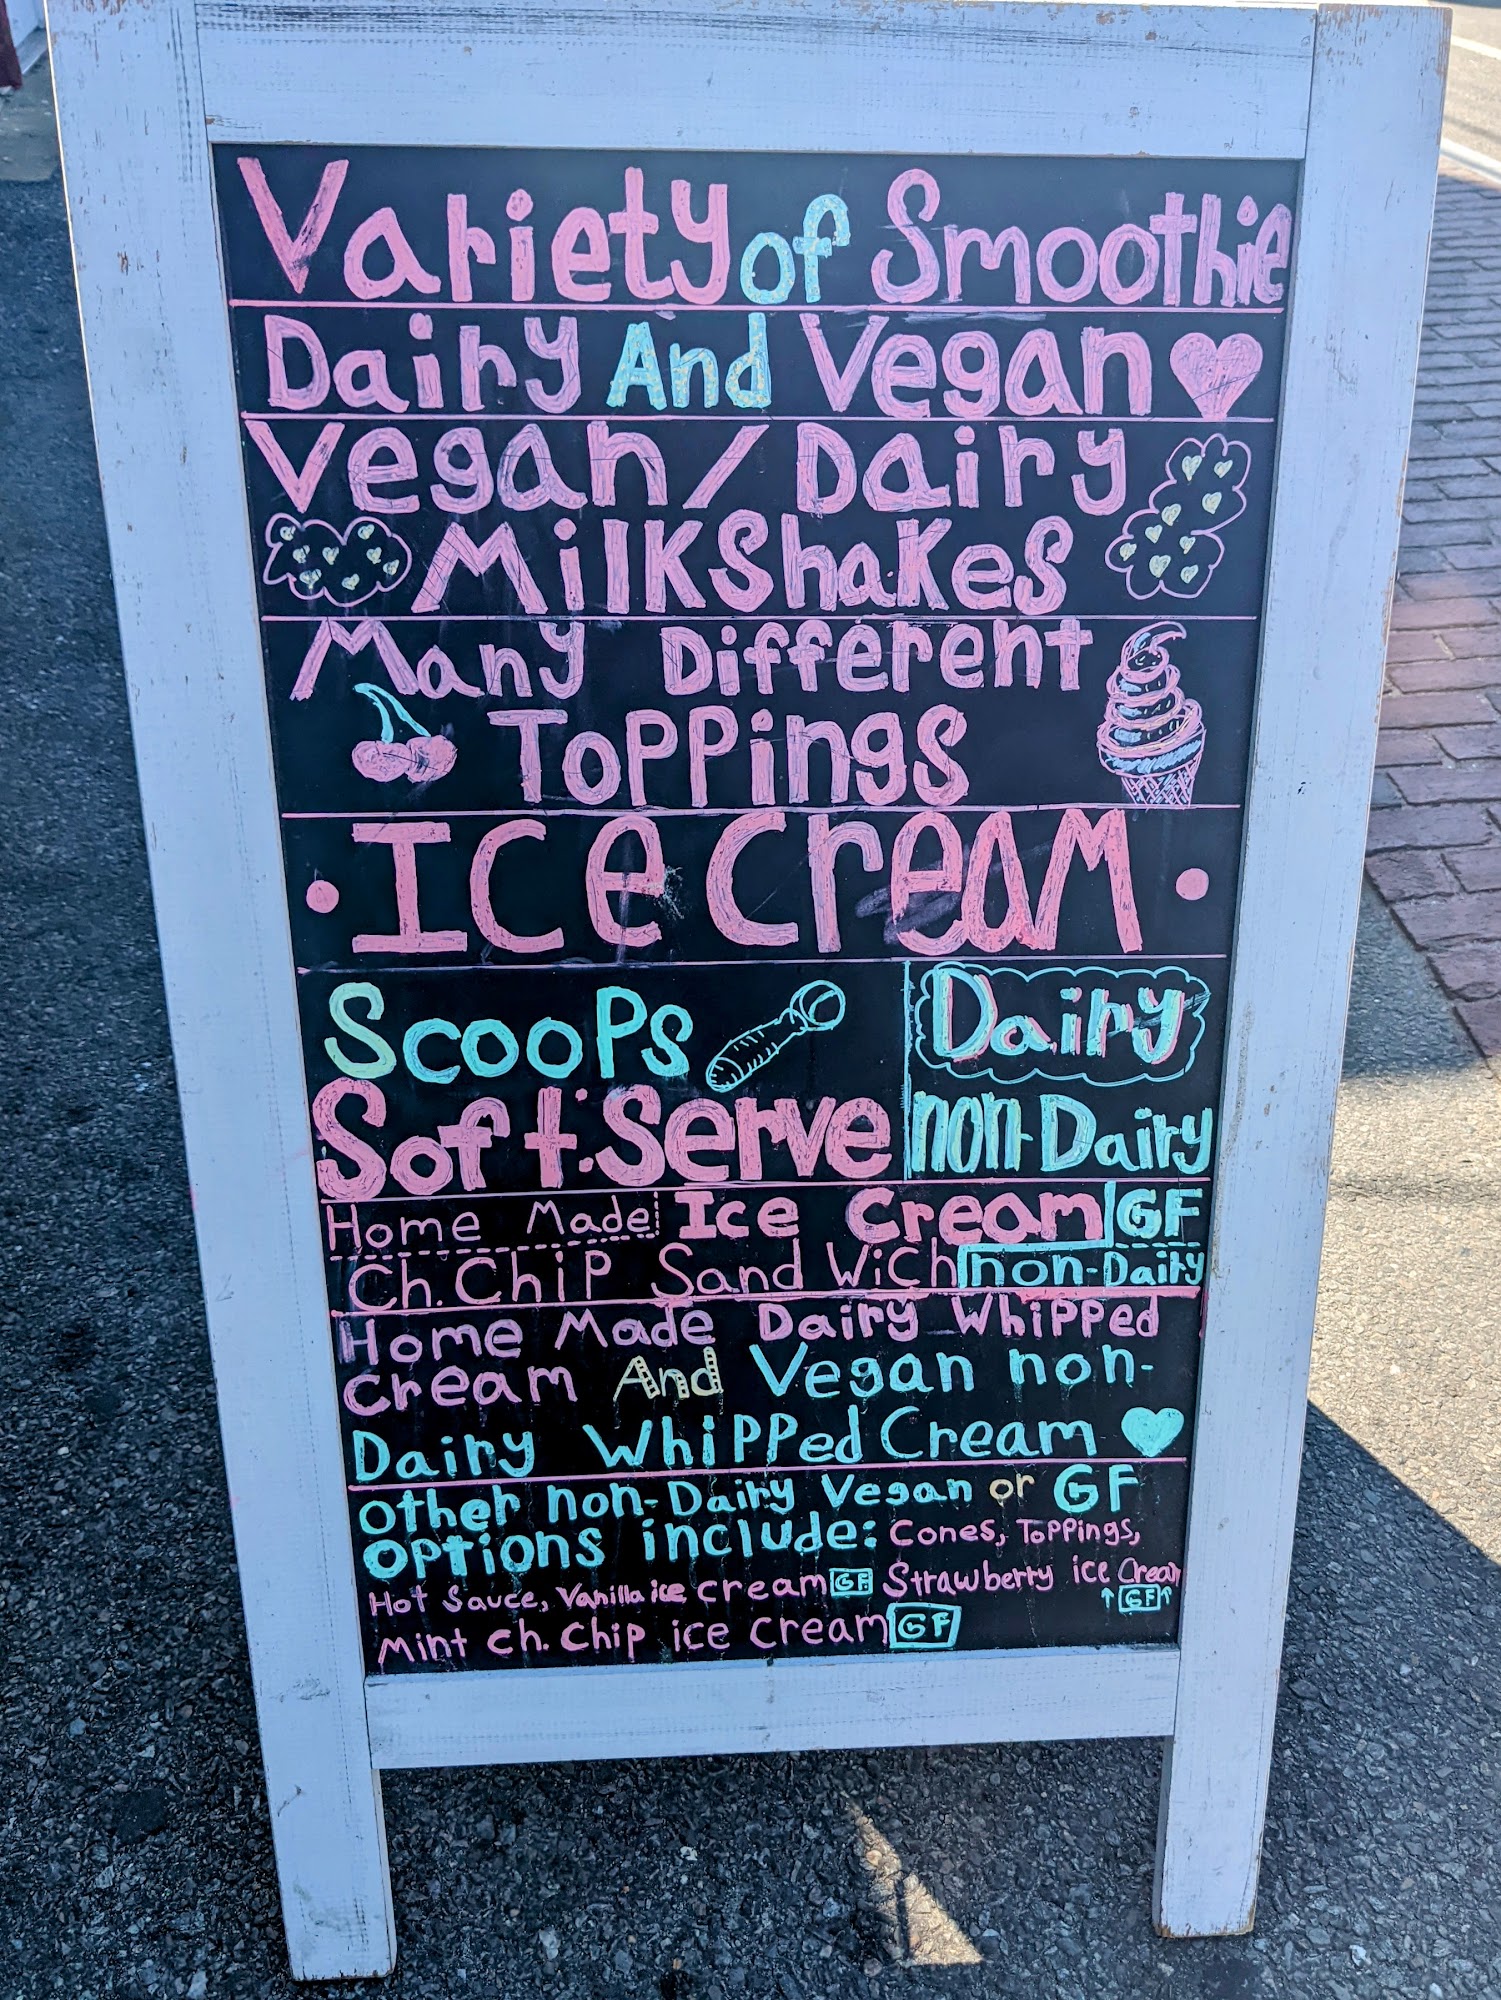 Variety of Smoothie
Dairy And Vegan
Vegan/Dairy
Milkshakes
Many Different
Toppings
Ice Cream
Scoops Dairy
Soft-Serve non-Dairy
Home Made Ice Cream GF
Ch. Chip Sandwich non-Dairy
Home Made Dairy Whipped
Cream And Vegan non-
Dairy Whipped Cream
other non-Dairy Vegan or GF
options include: Cones, Toppings,
Hot Sauce, Vanilla ice cream GF Strawberry ice Cream
GF
Mint Ch. Chip ice cream GF